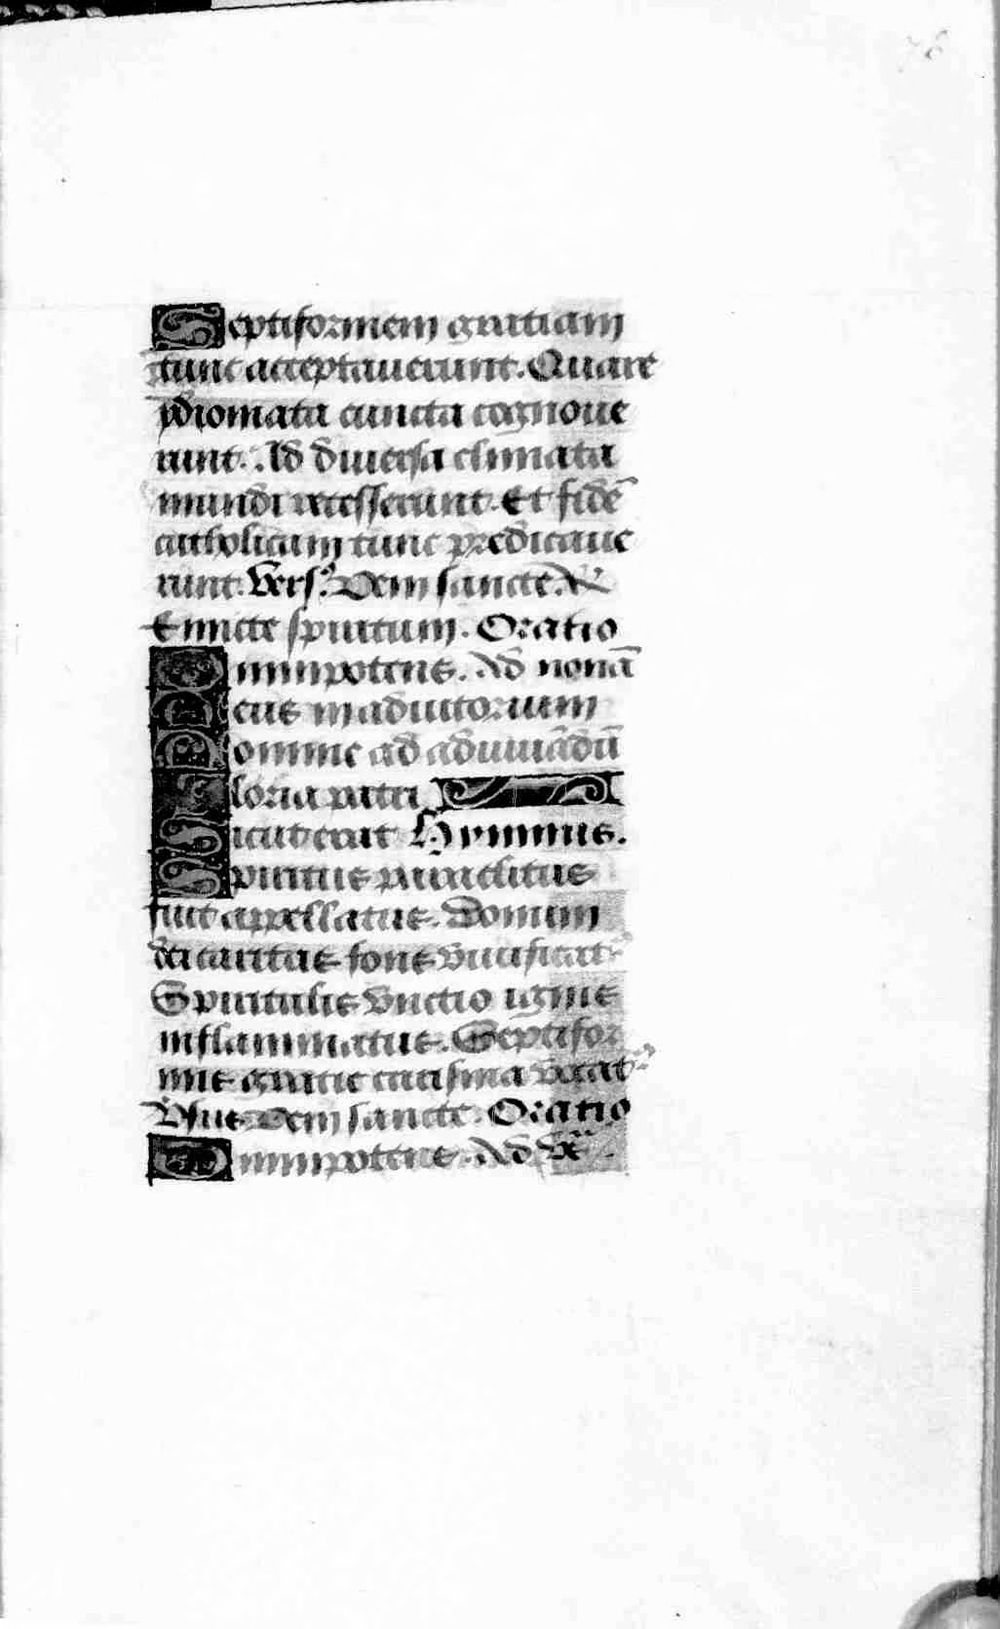 78
Septiformem gratiam
tunc acceptauerunt. Quare
ydiomata cuncta cognoue
runt. Ad diuersa climata
mundi recesserunt. Et fidē
catholicam tunc predicaue
runt. Vers⁹. Veni sancte. R̸
Emitte spiritum. Oratio
Omnipotens. Ad nonā
Deus in adiutorium
Domine ad adiuuādū
Gloria patri
Sicut erat Hymnus.
Spiritus paraclitus
fuit appellatus. Donum
dei caritas fons viuificat⁹
Spiritalis vnctio ignis
inflammatus. Septifor
mis gratie carisma vocat⁹
Vsus. Veni sancte. Oratio
Omnipotens. Ad